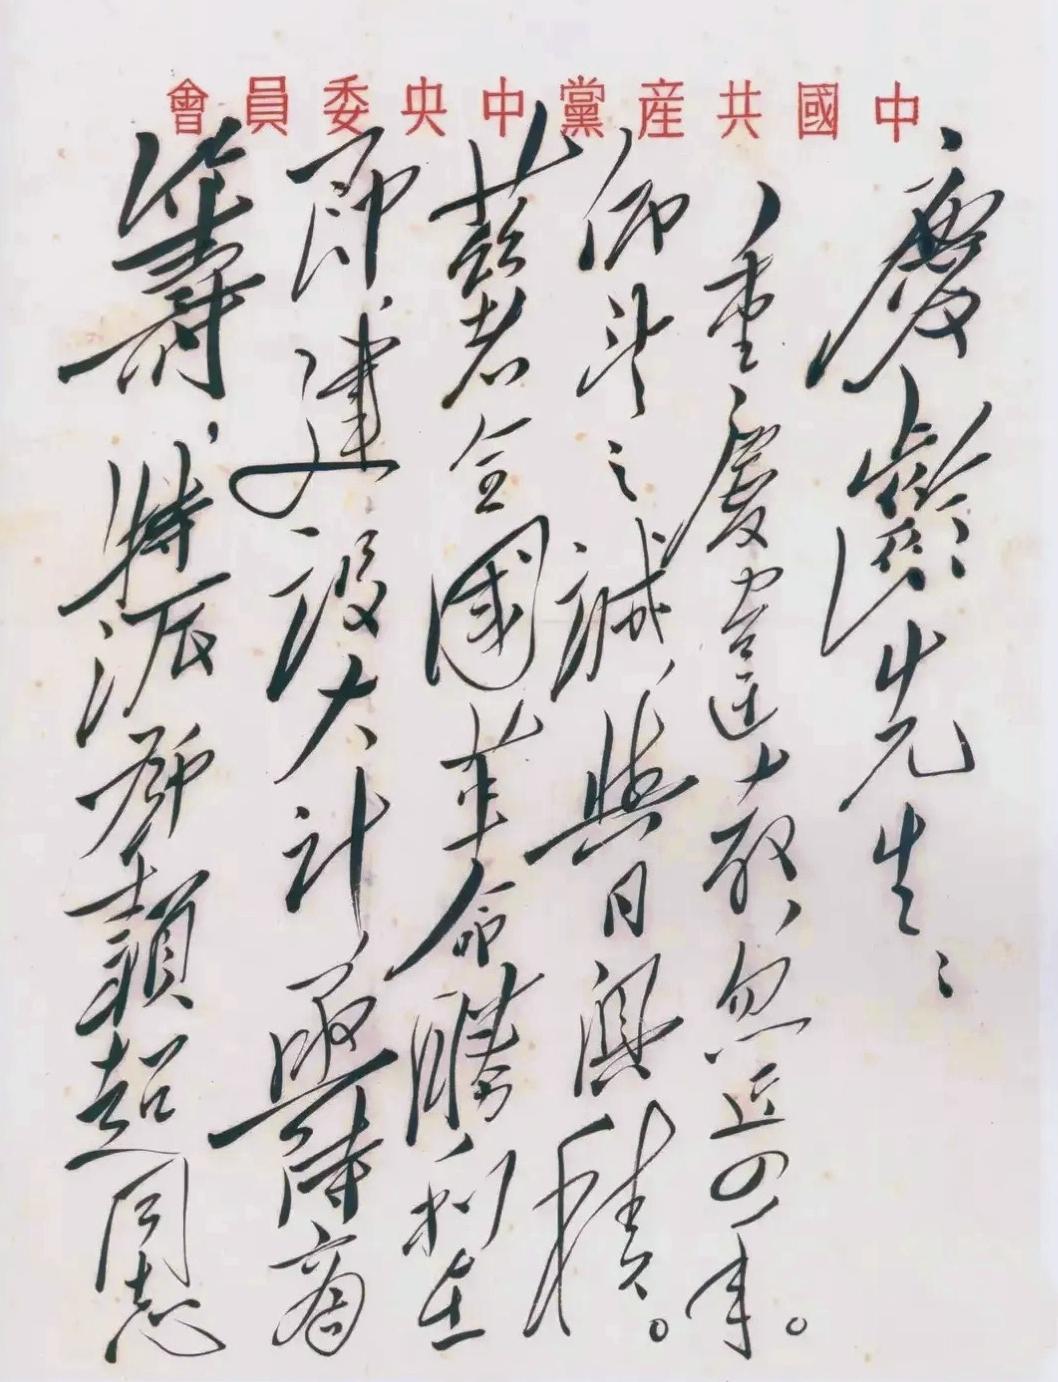 中國共産黨中央委員會
慶齡先生：
重慶違教，忽近四年。
仰望之誠，與日俱積。
茲者全國革命勝利在
即，建設大計，亟待商
籌，特派鄧穎超同志